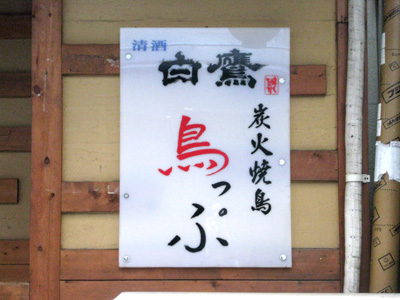 清酒
白鷹
炭火焼鳥
鳥っぷ